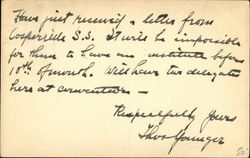 Have just received a letter from
Cosperville S.S. It will be impossible
for them to have an institute before
18th of month. Will have two delegates
here at convention —
Respectfully Yours
Thos Younger